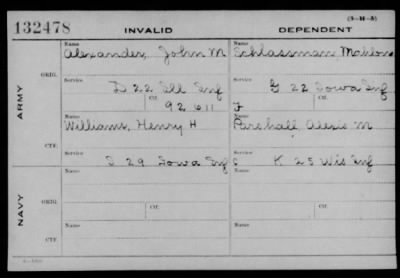 (3-M-A)
132478 INVALID DEPENDENT
Name Name
Alexander, John M Schlassman Mahlon
ARMY
ORIG.
Service Service
D 22 Ill Inf G 22 Iowa Inf
Ctf. Ctf.
92 611
Name Name
Williams, Henry H Parshall Alexis M
CTF.
Service Service
I 29 Iowa Inf K 25 Wis Inf
NAVY
Name Name
ORIG.
Ctf. Ctf.
Name Name
CTF.